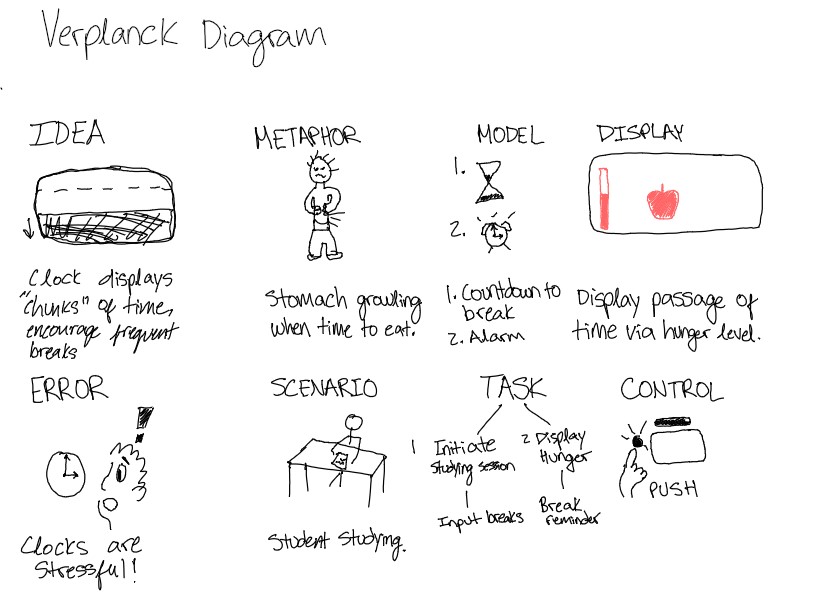 Verplanck Diagram
IDEA
Clock displays
"chunks" of time,
encourage frequent
breaks
METAPHOR
Stomach growling
when time to eat.
MODEL
1.
2.
1. Countdown to
break
2. Alarm
DISPLAY
Display passage of
time via hunger level.
ERROR
!
Clocks are
Stressful!
SCENARIO
Student Studying.
TASK
1 Initiate
Studying session
Input breaks
2 Display
Hunger
Break
reminder
CONTROL
PUSH